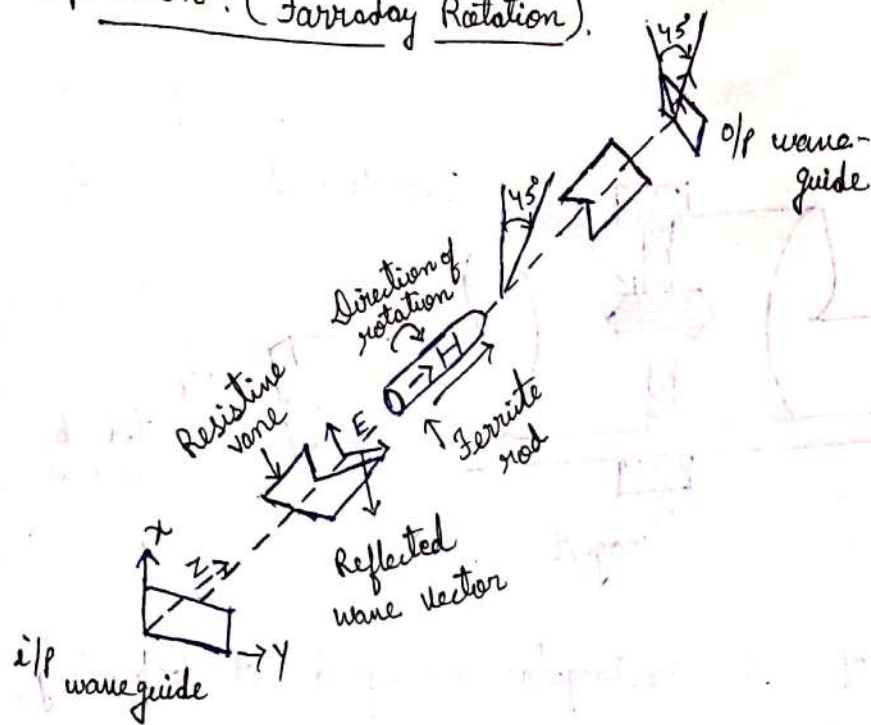 (Farraday Rotation).
45°
o/p wave-
guide
45°
Direction of
rotation
H
Resistive
vane
E
Ferrite
rod
Reflected
wave vector
X
Z
Y
i/p
waveguide